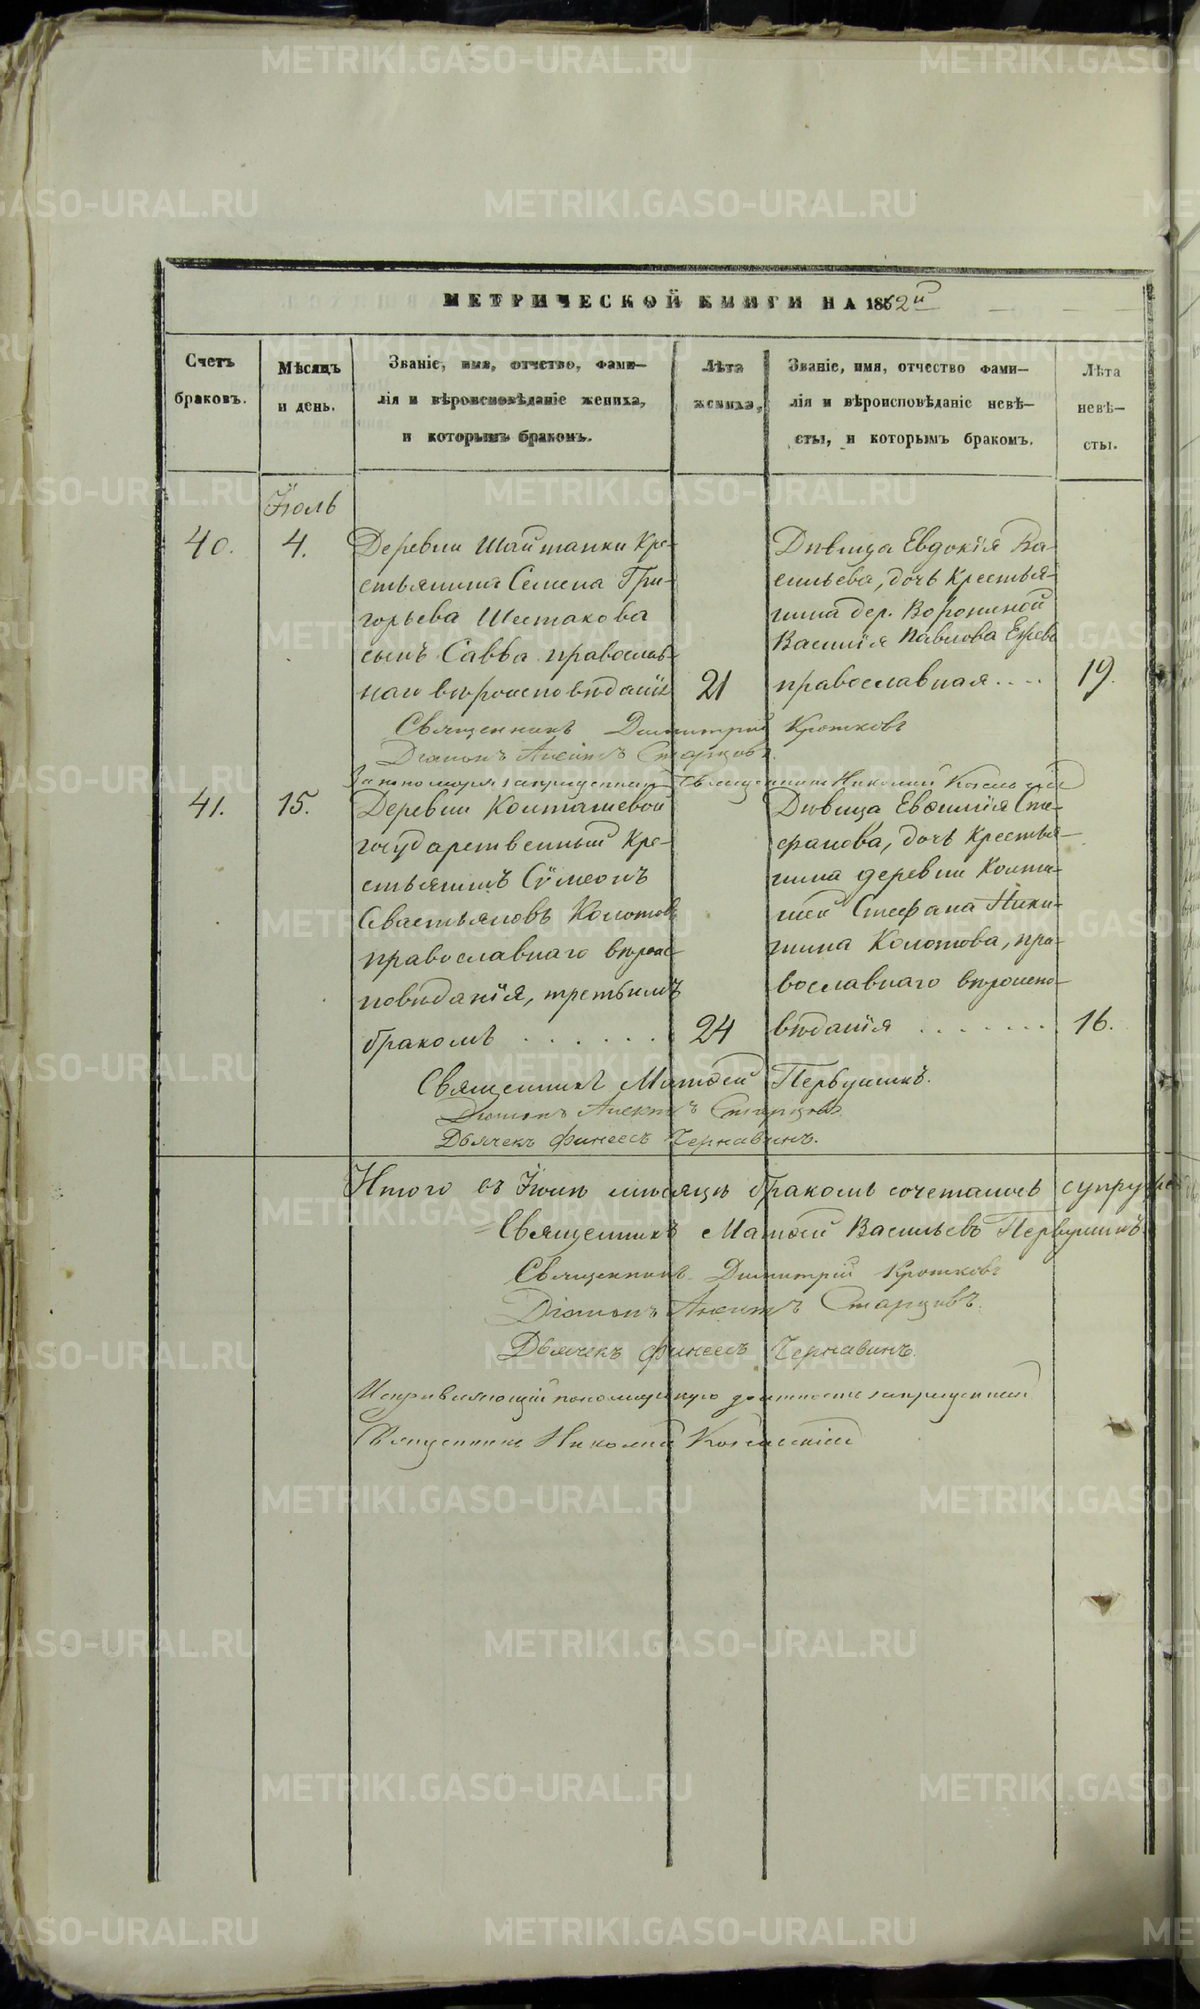 МЕТРИЧЕСКОЙ КНИГИ НА 1852й
Счетъ
браковъ.
Мѣсяцъ
и день.
Званіе, имя, отчество, фами-
лія и вѣроисповѣданіе жениха,
и которымъ бракомъ.
Лѣта
жениха,
Званіе, имя, отчество фами-
лія и вѣроисповѣданіе невѣ-
сты, и которымъ бракомъ.
Лѣта
невѣ-
сты.
Іюль
40.
4.
Деревни Шайтанки Кре-
стьянина Семена Гри-
горьева Шестакова
сынъ Савва православ-
наго вѣроисповѣданія
21
Дѣвица Евдокія Ва-
сильева, дочь Крестья-
нина дер. Ворониной
Василія Павлова
православная....
19.
Священникъ Димитрій Кротковъ
Діаконъ Старцовъ
запрещенный Священникъ Николай
41.
15.
Деревни Колташевой
государственный Кре-
стьянинъ Сѵмеонъ
Севастьяновъ Колотовъ
православнаго вѣроис-
повѣданія, третьимъ
бракомъ . . . . . .
24
Дѣвица Евѳимія Сте-
фанова, дочь Крестья-
нина деревни Колта-
шей Стефана Ники-
тина Колотова, пра-
вославнаго вѣроиспо-
вѣданія . . . . . . .
16.
Священникъ Матѳей Первушинъ.
Діаконъ Старцовъ
Дьячекъ Финеесъ Чернавинъ.
Итого въ Іюлѣ мѣсяцѣ бракомъ сочеталось
Священникъ Матѳей Васильевъ Первушинъ
Священникъ Димитрій Кротковъ
Діаконъ Старцовъ.
Дьячекъ Финеесъ Чернавинъ.
Исправляющій пономарскую должность запрещенный
Священникъ Николай
METRIKI.GASO-URAL.RU